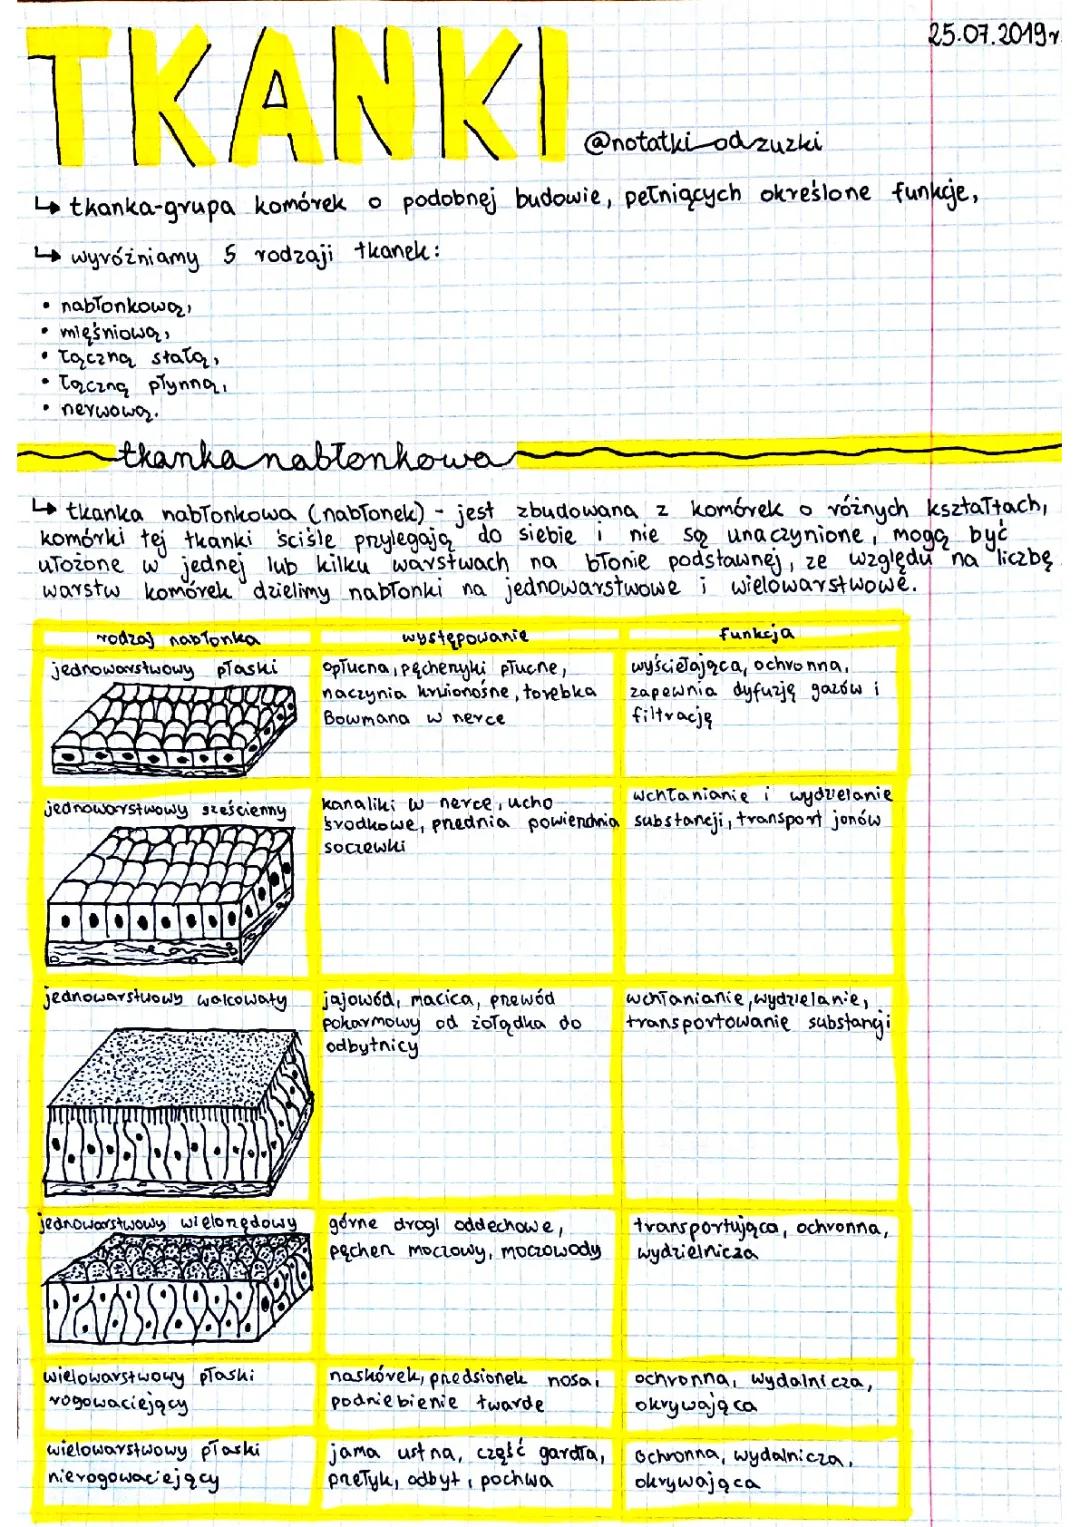 25.07.2019r
TKANKI
@notatki_od_zuzki
↳ tkanka-grupa komórek o podobnej budowie, pełniących określone funkcje,
↳ wyróżniamy 5 rodzaji tkanek:
• nabłonkową,
• mięśniową,
• łączną stałą,
• łączną płynną,
• nerwową.
tkanka nabłonkowa
↳ tkanka nabłonkowa (nabłonek) - jest zbudowana z komórek o różnych kształtach,
komórki tej tkanki ściśle przylegają do siebie i nie są unaczynione, mogą być
ułożone w jednej lub kilku warstwach na błonie podstawnej, ze względu na liczbę
warstw komórek dzielimy nabłonki na jednowarstwowe i wielowarstwowe.
rodzaj nabłonka
występowanie
funkcja
jednowarstwowy płaski
opłucna, pęcherzyki płucne,
naczynia krwionośne, torebka
Bowmana w nerce
wyściełająca, ochronna,
zapewnia dyfuzję gazów i
filtrację
jednowarstwowy sześcienny
kanaliki w nerce, ucho
środkowe, przednia powierzchnia
soczewki
wchłanianie i wydzielanie
substancji, transport jonów
jednowarstwowy walcowaty
jajowód, macica, przewód
pokarmowy od żołądka do
odbytnicy
wchłanianie, wydzielanie,
transportowanie substancji
jednowarstwowy wielorzędowy
górne drogi oddechowe,
pęcherz moczowy, moczowody
transportująca, ochronna,
wydzielnicza
wielowarstwowy płaski
rogowaciejący
naskórek, przedsionek nosa,
podniebienie twarde
ochronna, wydalnicza,
okrywająca
wielowarstwowy płaski
nierogowaciejący
jama ustna, część gardła,
przełyk, odbyt, pochwa
ochronna, wydalnicza,
okrywająca